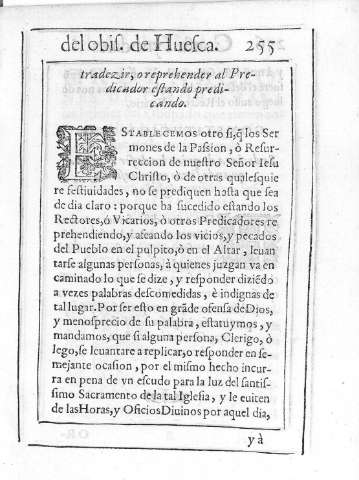 del obis. de Huesca. 255
tradezir, o reprehender al Pre-
dicador estando predi-
cando.
ESTABLECEMOS otro si, q̃ los Ser
mones de la Passion, ò Resur-
reccion de nuestro Señor Iesu
Christo, ò de otras qualesquie
re festiuidades, no se prediquen hasta que sea
de dia claro: porque ha sucedido estando los
Rectores, ò Vicarios, ò otros Predicadores re
prehendiendo, y afeando los vicios, y pecados
del Pueblo en el pulpito, ò en el Altar, leuan
tarse algunas personas, à quienes juzgan va en
caminado lo que se dize, y responder diziẽdo
a vezes palabras descomedidas, è indignas de
tal lugar. Por ser esto en grãde ofensa de Dios,
y menosprecio de su palabra, estatuymos, y
mandamos, que si alguna persona, Clerigo, ò
lego, se leuantare a replicar, o responder en se-
mejante ocasion, por el mismo hecho incur-
ra en pena de vn escudo para la luz del santis-
simo Sacramento de la tal Iglesia, y le euiten
de las Horas, y Oficios Diuinos por aquel dia,
yà